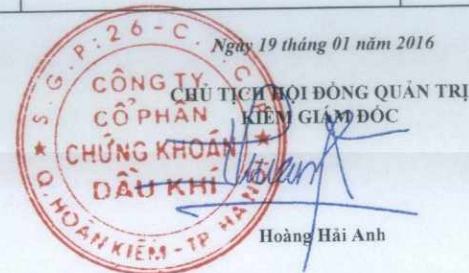 Ngày 19 tháng 01 năm 2016
CHỦ TỊCH HỘI ĐỒNG QUẢN TRỊ
KIÊM GIÁM ĐỐC
S.G.P: 26-C.
CÔNG TY
CỔ PHẦN
CHỨNG KHOÁN
DẦU KHÍ
Q. HOÀN KIẾM - TP. HÀ NỘI
Hoàng Hải Anh